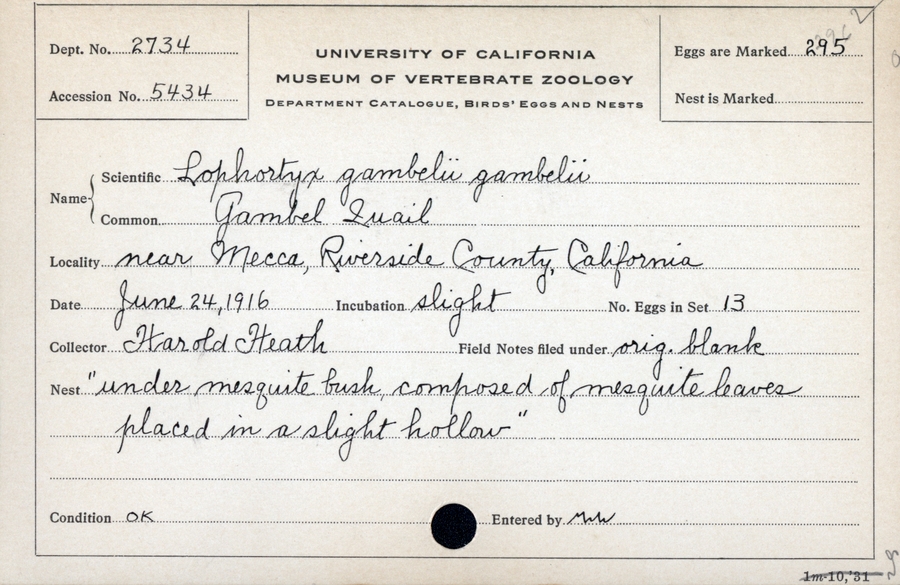 Dept. No. 2734
Accession No. 5434
UNIVERSITY OF CALIFORNIA
MUSEUM OF VERTEBRATE ZOOLOGY
DEPARTMENT CATALOGUE, BIRDS' EGGS AND NESTS
Eggs are Marked 295
Nest is Marked
Name
Scientific Lophortyx gambelii gambelii
Common Gambel Quail
Locality near Mecca, Riverside County, California
Date June 24, 1916 Incubation slight No. Eggs in Set 13
Collector Harold Heath Field Notes filed under orig. blank
Nest "under mesquite bush, composed of mesquite leaves
placed in a slight hollow"
Condition OK Entered by
1m-10,'31